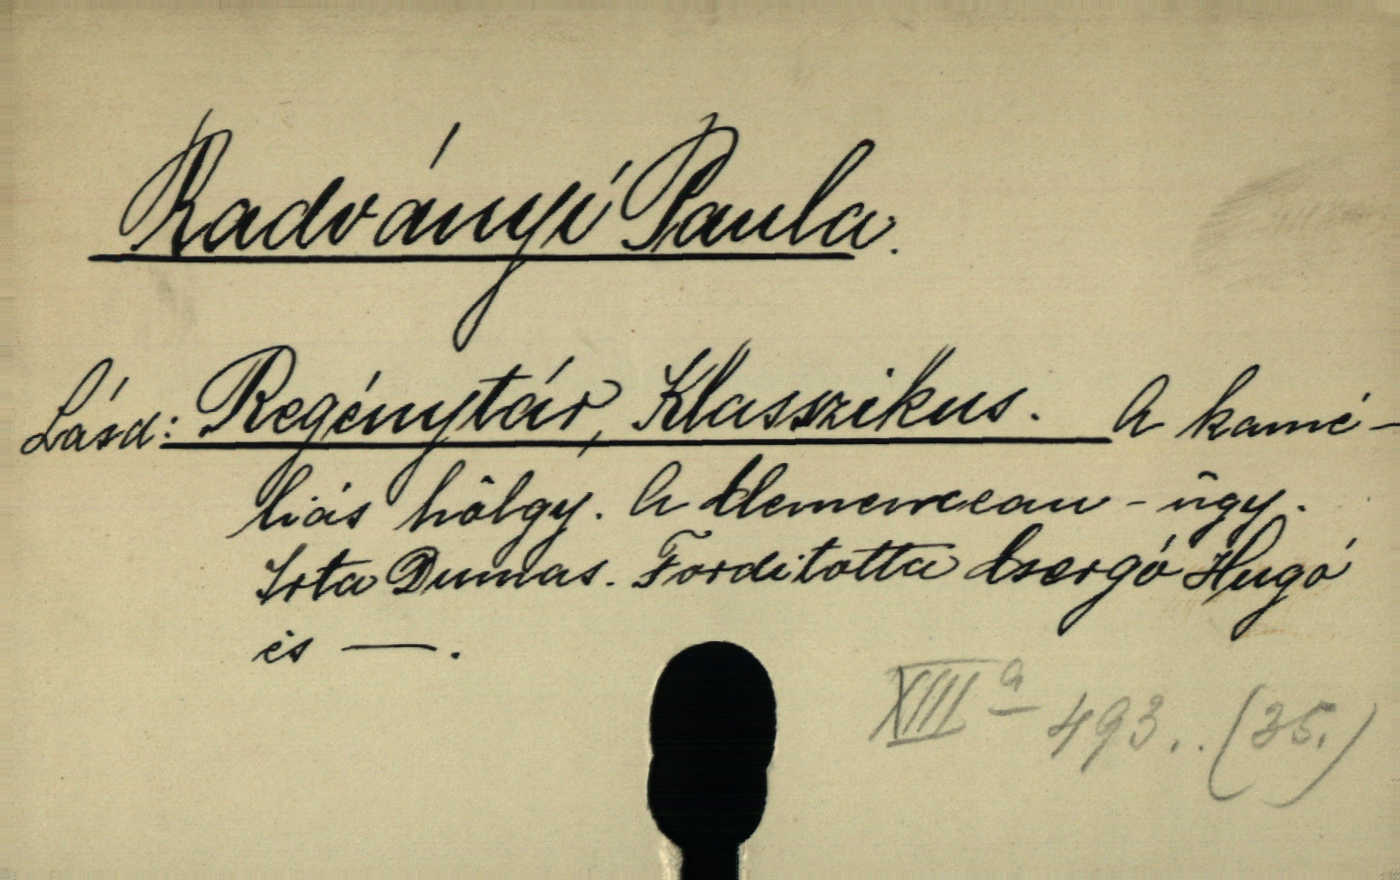 Radványi Paula.
Lásd: Regénytár, Klasszikus. A kamé-
liás hölgy. A Clemenceau-ügy.
Irta Dumas. Forditotta Csergó Hugó
és —.
XIII a 493.. (35.)